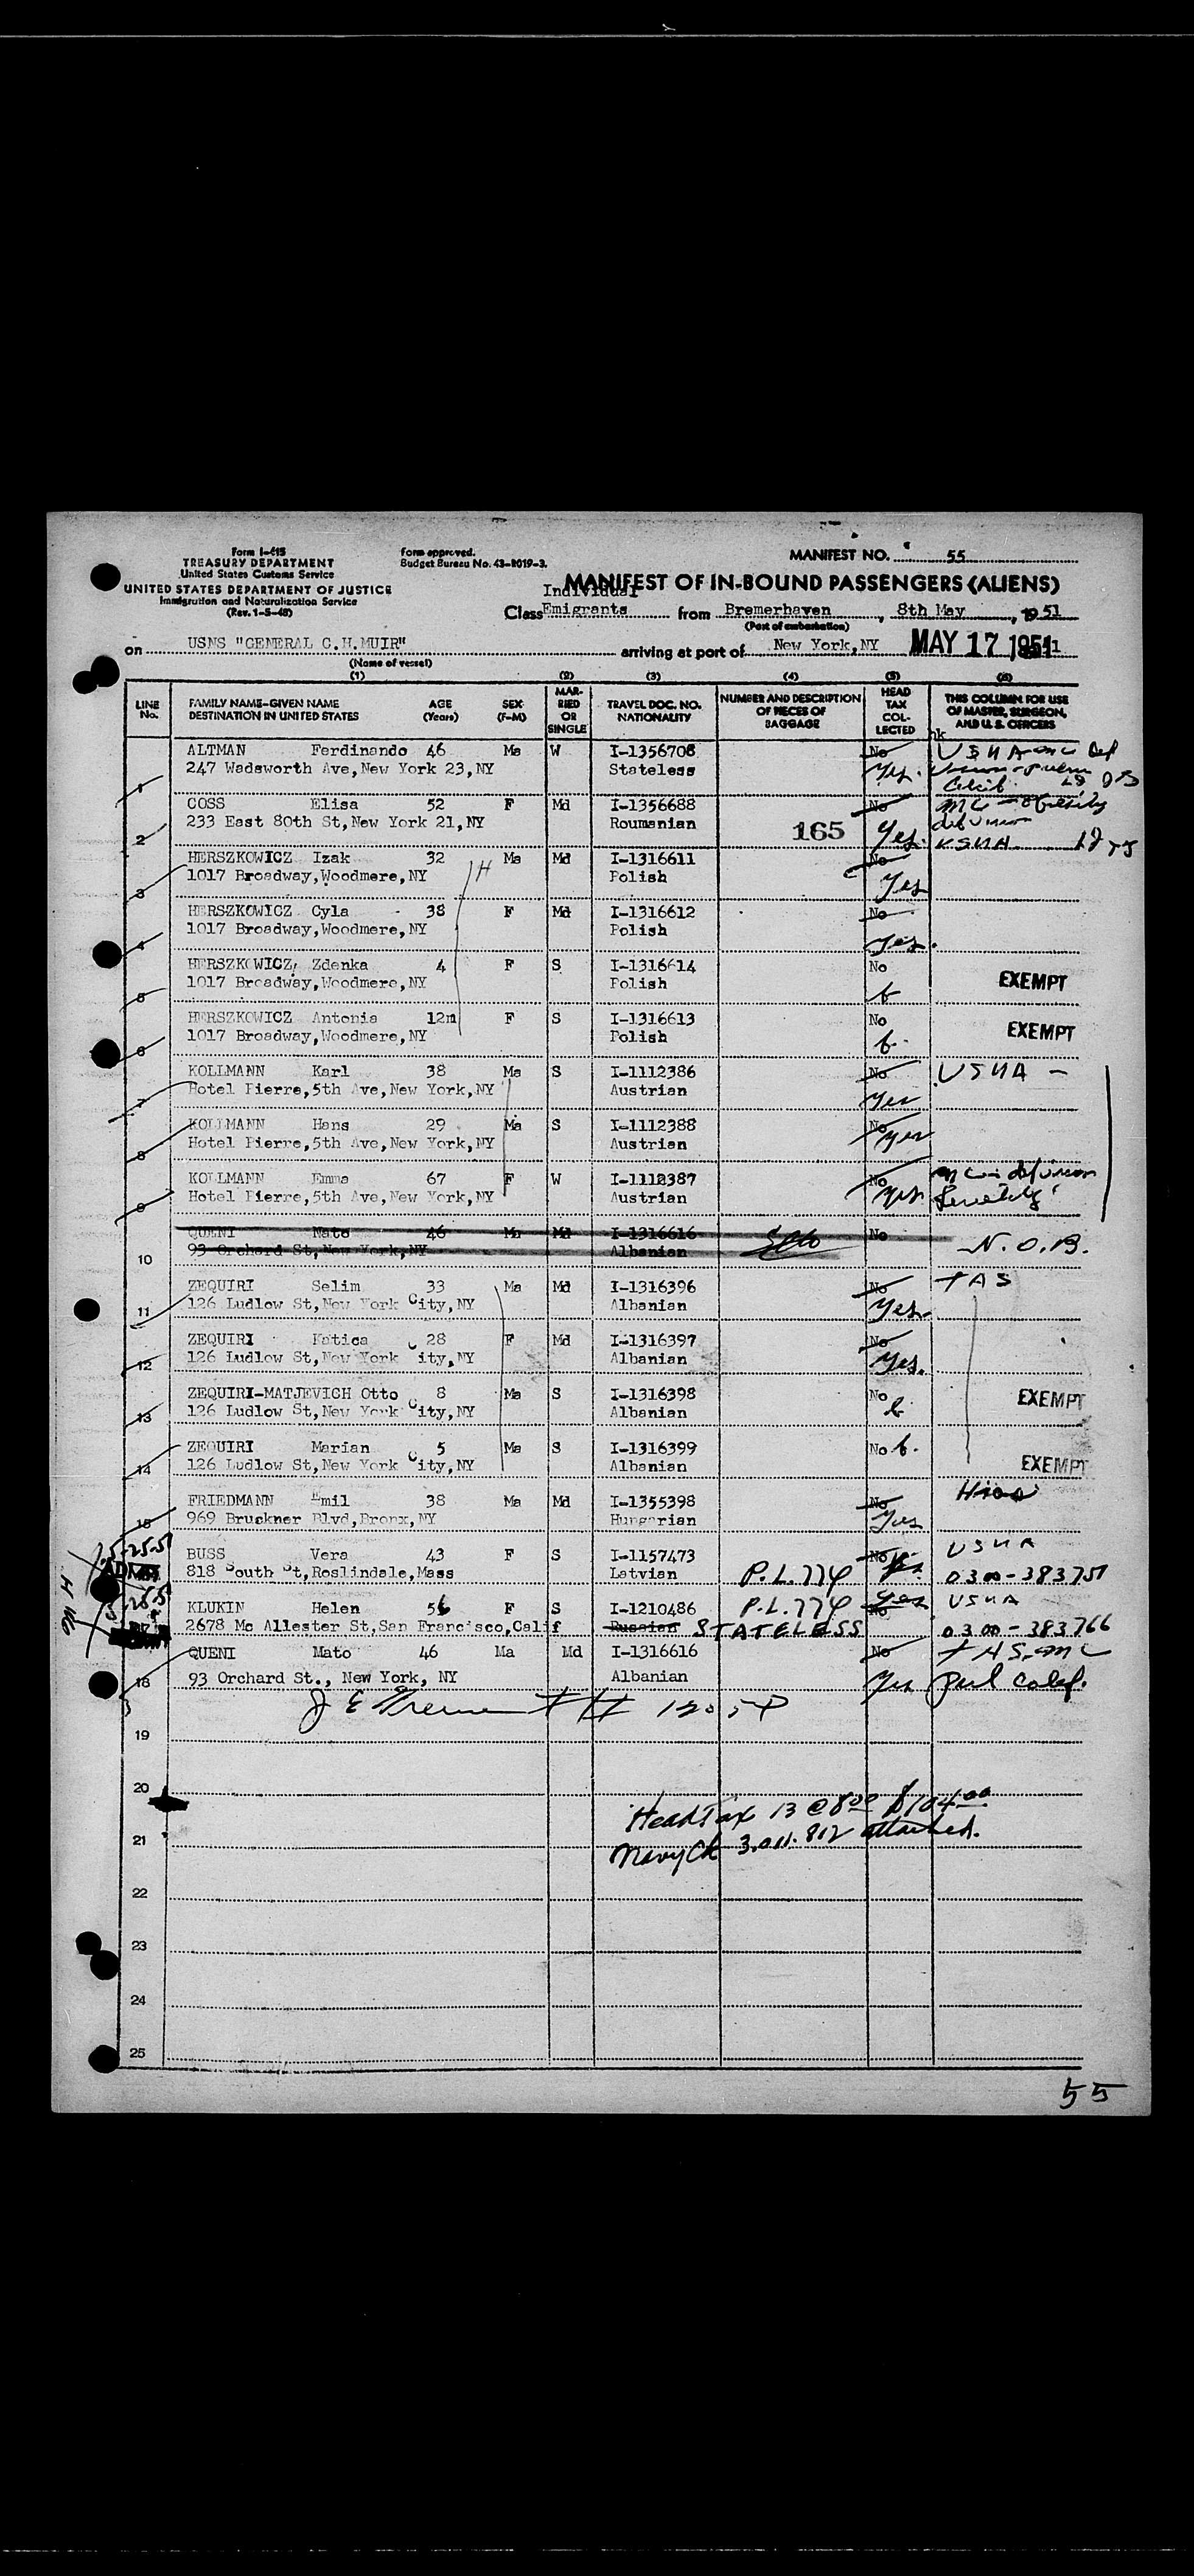 MANIFEST NO. 55
Form I-415
TREASURY DEPARTMENT
United States Customs Service
UNITED STATES DEPARTMENT OF JUSTICE
Immigration and Naturalization Service
(Rev. 1-5-48)
Form approved.
Budget Bureau No. 43-R019-3.
MANIFEST OF IN-BOUND PASSENGERS (ALIENS)
Individual
Class Emigrants from Bremerhaven, 8th May, 1951
(Port of embarkation)
on USNS "GENERAL C.H.MUIR" arriving at port of New York,NY MAY 17 1951
(Name of vessel)
(1) (2) (3) (4) (5) (6)
LINE No. FAMILY NAME-GIVEN NAME DESTINATION IN UNITED STATES AGE (Years) SEX (F-M) MARRIED OR SINGLE TRAVEL DOC. NO. NATIONALITY NUMBER AND DESCRIPTION OF PIECES OF BAGGAGE HEAD TAX COLLECTED THIS COLUMN FOR USE OF MASTER, SURGEON, AND U. S. OFFICERS
ALTMAN Ferdinando 46 Ma W I-1356708 No USNA
1 247 Wadsworth Ave,New York 23,NY Stateless Yes.
COSS Elisa 52 F Md I-1356688 No
2 233 East 80th St,New York 21,NY Roumanian 165 Yes. USNA
HERSZKOWICZ Izak 32 Ma Md I-1316611 No
3 1017 Broadway,Woodmere,NY Polish Yes
HERSZKOWICZ Cyla 38 F Md I-1316612 No
4 1017 Broadway,Woodmere,NY Polish Yes.
HERSZKOWICZ, Zdenka 4 F S I-1316614 No
5 1017 Broadway,Woodmere,NY Polish EXEMPT
HERSZKOWICZ Antonia 12m F S I-1316613 No
6 1017 Broadway,Woodmere,NY Polish EXEMPT
KOLLMANN Karl 38 Ma S I-1112386 No USNA -
7 Hotel Pierre,5th Ave,New York,NY Austrian Yes
KOLLMANN Hans 29 Ma S I-1112388 No
8 Hotel Pierre,5th Ave,New York,NY Austrian Yes
KOLLMANN Emma 67 F W I-1112387 No
9 Hotel Pierre,5th Ave,New York,NY Austrian Yes
QUENI Mato 46 Ma Md I-1316616 No
10 93 Orchard St,New York,NY Albanian N.O.B.
ZEQUIRI Selim 33 Ma Md I-1316396 No
11 126 Ludlow St,New York City,NY Albanian Yes
ZEQUIRI Katica 28 F Md I-1316397 No
12 126 Ludlow St,New York City,NY Albanian Yes.
ZEQUIRI-MATJEVICH Otto 8 Ma S I-1316398 No
13 126 Ludlow St,New York City,NY Albanian EXEMPT
ZEQUIRI Marian 5 Ma S I-1316399 No
14 126 Ludlow St,New York City,NY Albanian EXEMPT
FRIEDMANN Emil 38 Ma Md I-1355398 No Hias
15 969 Bruckner Blvd,Bronx,NY Hungarian Yes
5-25-51
BUSS Vera 43 F S I-1157473 No USNA
818 South St,Roslindale,Mass Latvian P.L.774 0300-383751
KLUKIN Helen 56 F S I-1210486 P.L.774 Yes No USNA
2678 Mc Allester St,San Francisco,Calif Russian STATELESS 0300-383766
QUENI Mato 46 Ma Md I-1316616 No
18 93 Orchard St., New York, NY Albanian Yes
19
20
HeadTax 13 @ 8.00 $104.00
21
Navy Ck 3,011.812 attached.
22
23
24
25
55